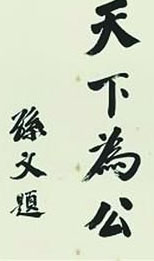 天下為公
孫文題